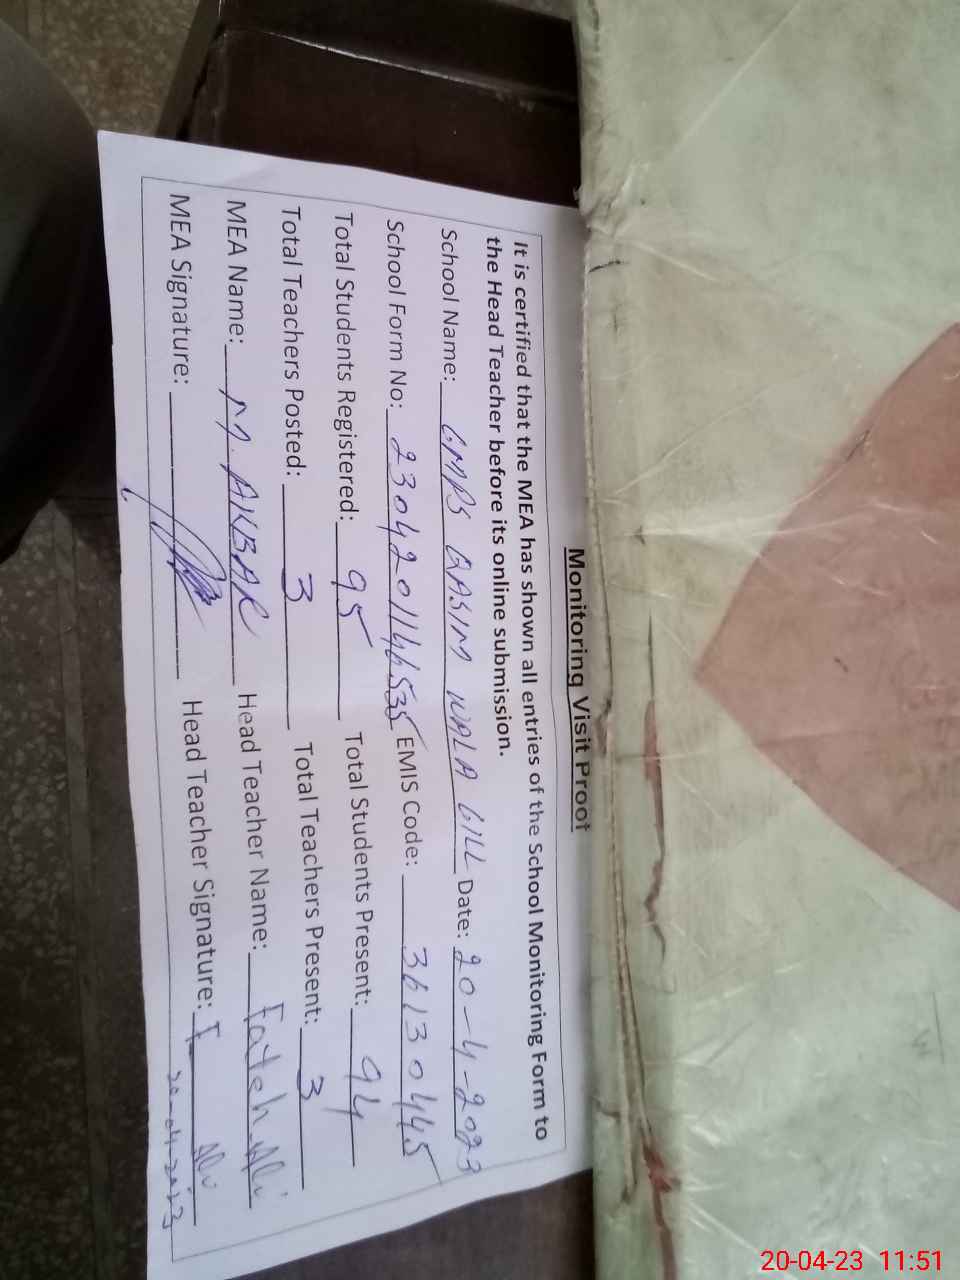 Monitoring Visit Proof
It is certified that the MEA has shown all entries of the School Monitoring Form to
the Head Teacher before its online submission.
School Name: GMPS QASIM WALA GILL Date: 20-4-2023
School Form No: 2304201146535 EMIS Code: 36130445
Total Students Registered: 95 Total Students Present: 94
Total Teachers Posted: 3 Total Teachers Present: 3
MEA Name: M. AKBAR Head Teacher Name: Fateh Ali
MEA Signature: Head Teacher Signature: F Ali
20-04-2023
20-04-23 11:51